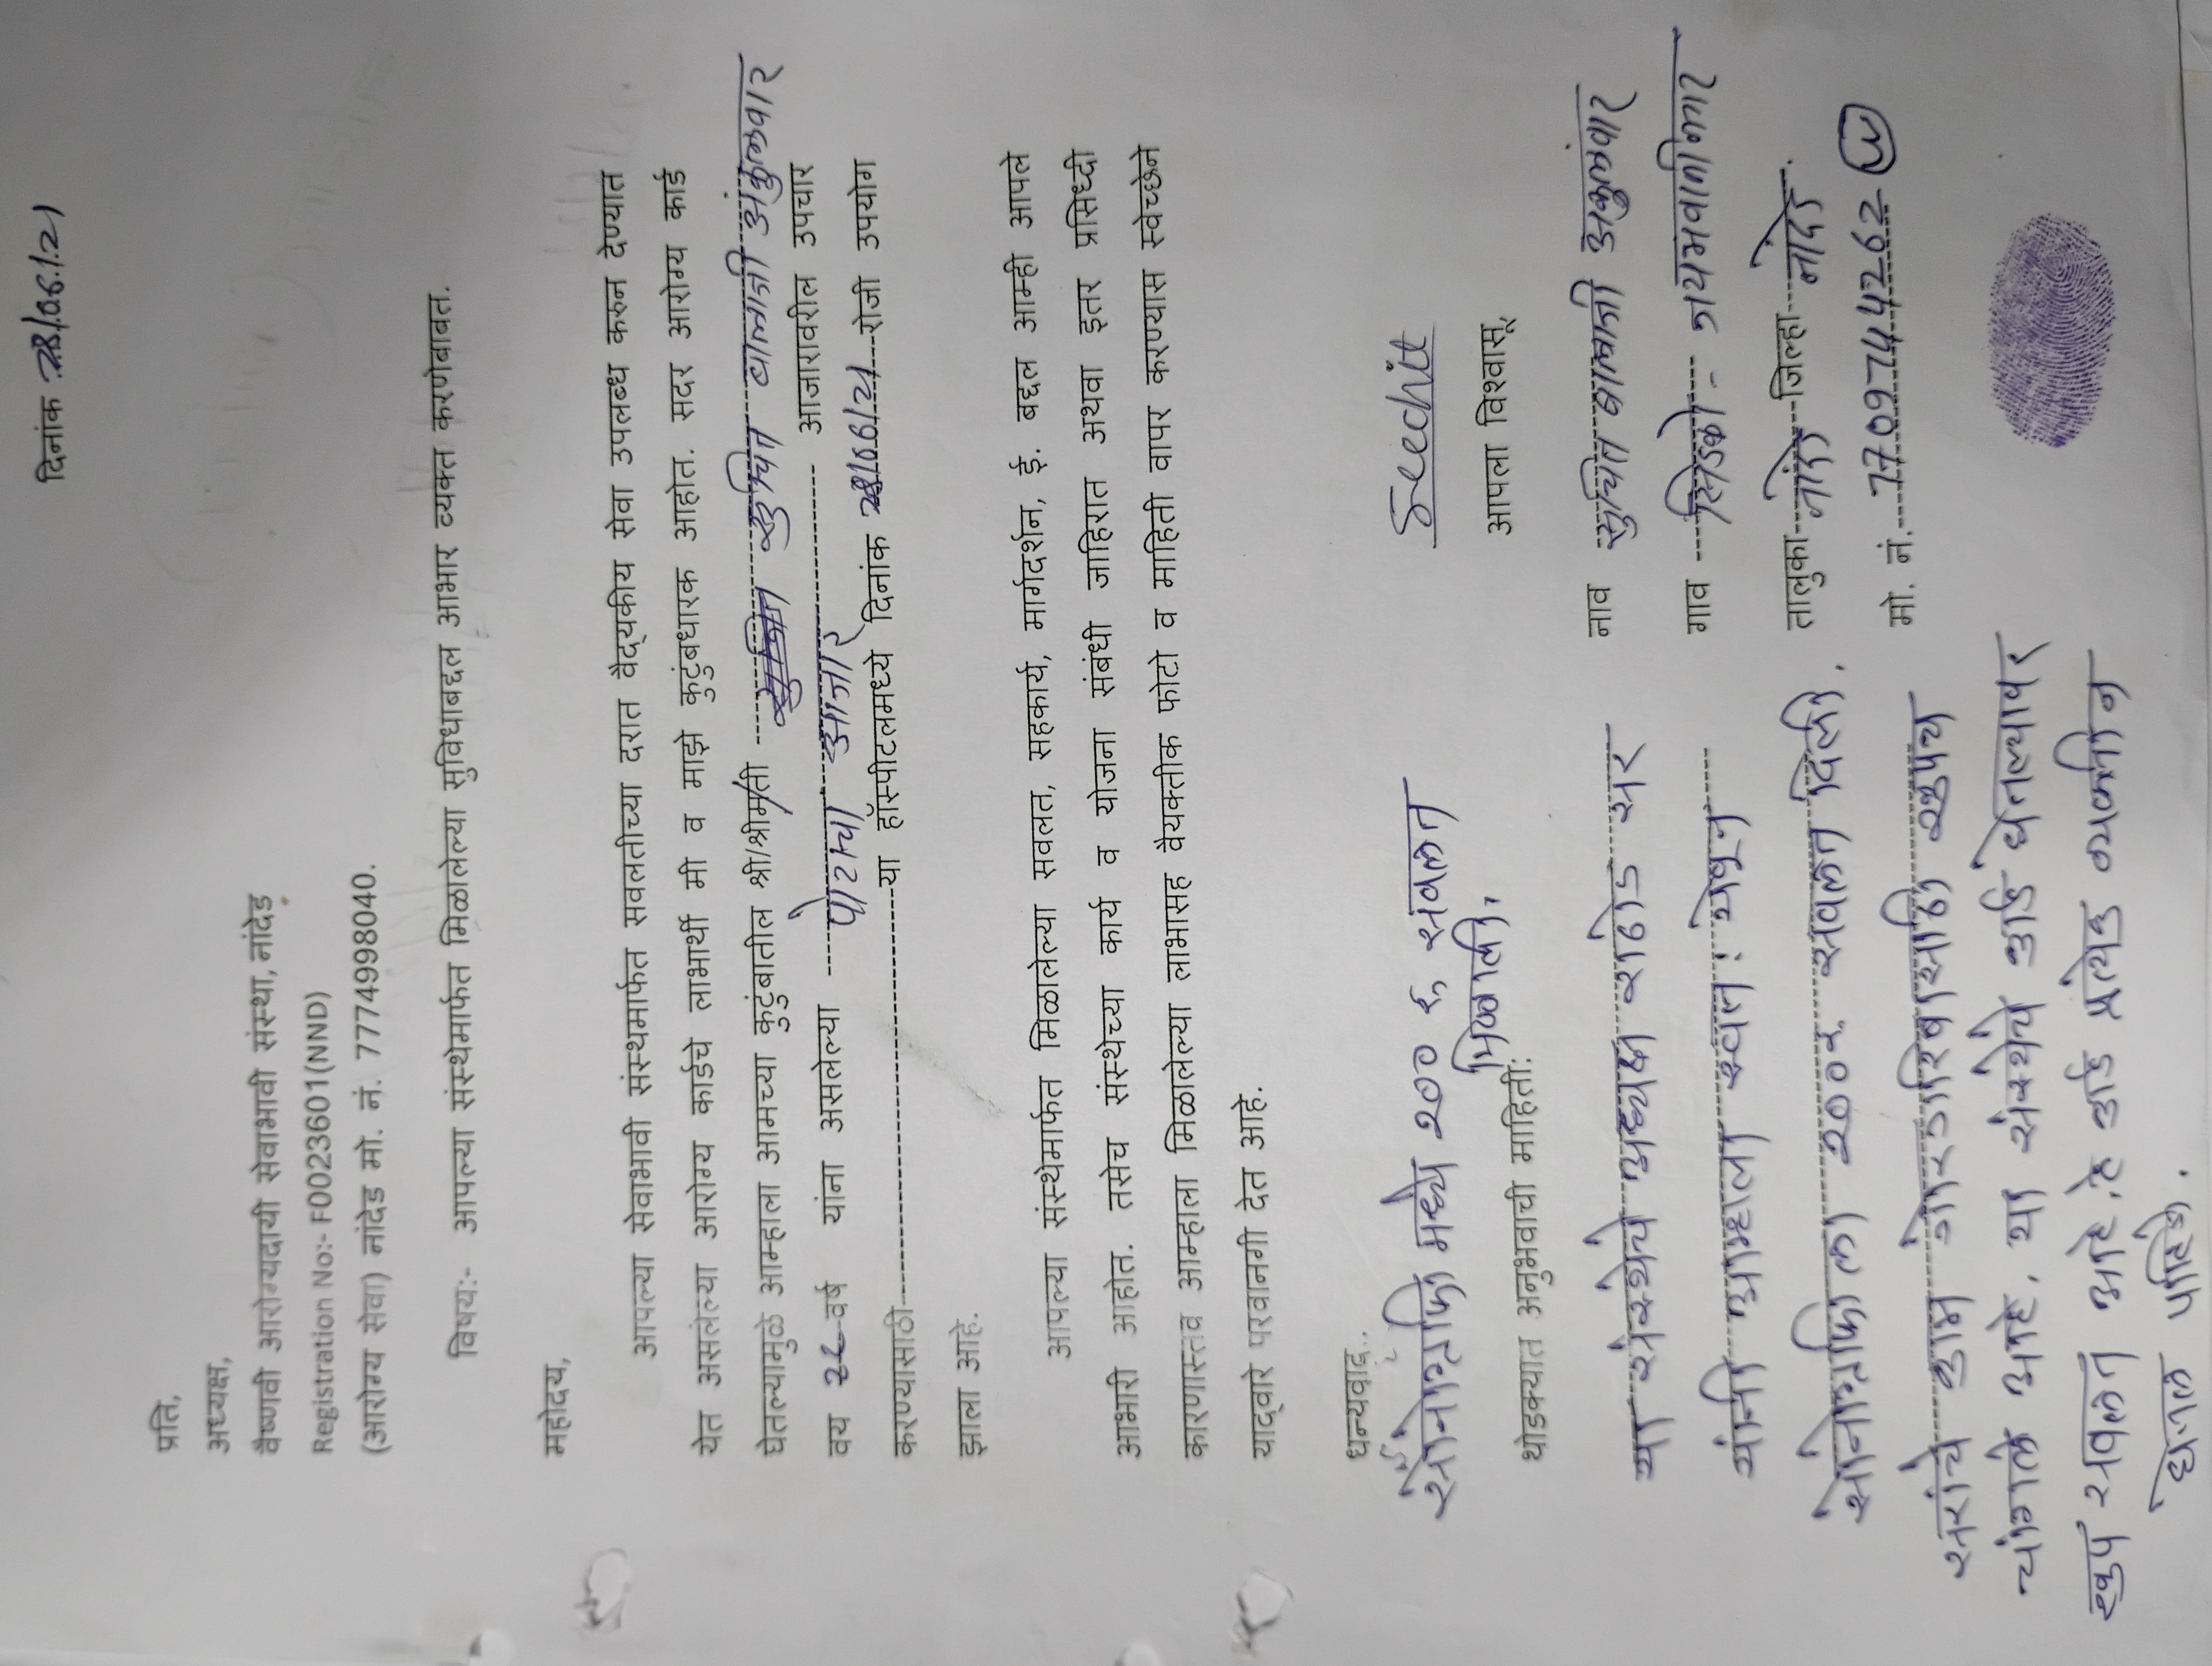 दिनांक :28/06/21
प्रति,
अध्यक्ष,
वैष्णवी आरोग्यदायी सेवाभावी संस्था, नांदेड
Registration No:- F0023601(NND)
(आरोग्य सेवा) नांदेड मो. नं. 7774998040.
विषय:- आपल्या संस्थेमार्फत मिळालेल्या सुविधाबद्दल आभार व्यक्त करणेबाबत.
महोदय,
आपल्या सेवाभावी संस्थमार्फत सवलतीच्या दरात वैद्यकीय सेवा उपलब्ध करुन देण्यात
येत असलेल्या आरोग्य कार्डचे लाभार्थी मी व माझे कुटुंबधारक आहोत. सदर आरोग्य कार्ड
घेतल्यामुळे आम्हाला आमच्या कुटुंबातील श्री/श्रीमती सुचिता बालाजी अंकुलवार
वय वर्ष यांना असलेल्या पोटाचा आजार आजारावरील उपचार
करण्यासाठी या हॉस्पीटलमध्ये दिनांक 28/06/21 रोजी उपयोग
झाला आहे.
आपल्या संस्थेमार्फत मिळालेल्या सवलत, सहकार्य, मार्गदर्शन, ई. बद्दल आम्ही आपले
आभारी आहोत. तसेच संस्थेच्या कार्य व योजना संबंधी जाहिरात अथवा इतर प्रसिध्दी
कारणास्तव आम्हाला मिळालेल्या लाभासह वैयक्तीक फोटो व माहिती वापर करण्यास स्वेच्छेने
याद्वारे परवानगी देत आहे.
धन्यवाद..
सोनोग्राफि मध्ये 200 रु. सवलत
मिळाली.
आपला विश्वासू,
थोडक्यात अनुभवाची माहिती:
नाव सुचिता बालाजी अंकुलवार
गाव सिडको - जयभवानीनगर
तालुका नांदेड जिल्हा नांदेड
मो. नं. 7709744262
या संस्थेचे अध्यक्ष राठोड सर
यांनी आम्हाला स्वतः येऊन
सोनोग्राफिला 200रु. सवलत दिली.
सरांचे काम गोरगरिबांसाठी खुपच
चांगले आहे. या संस्थेचे कार्ड घेतल्यावर
खुप सवलत आहे. हे कार्ड प्रत्येक व्यक्तीन
घेतले पाहिजे.